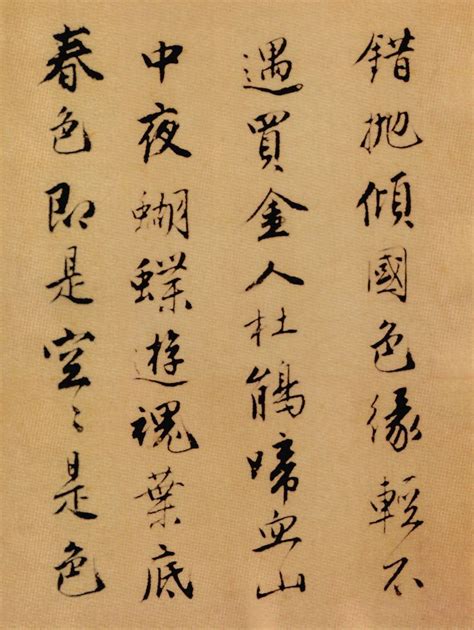 錯拋傾國色緣輕不
遇買金人杜鵑啼血山
中夜蝴蝶遊魂葉底
春色即是空〻是色